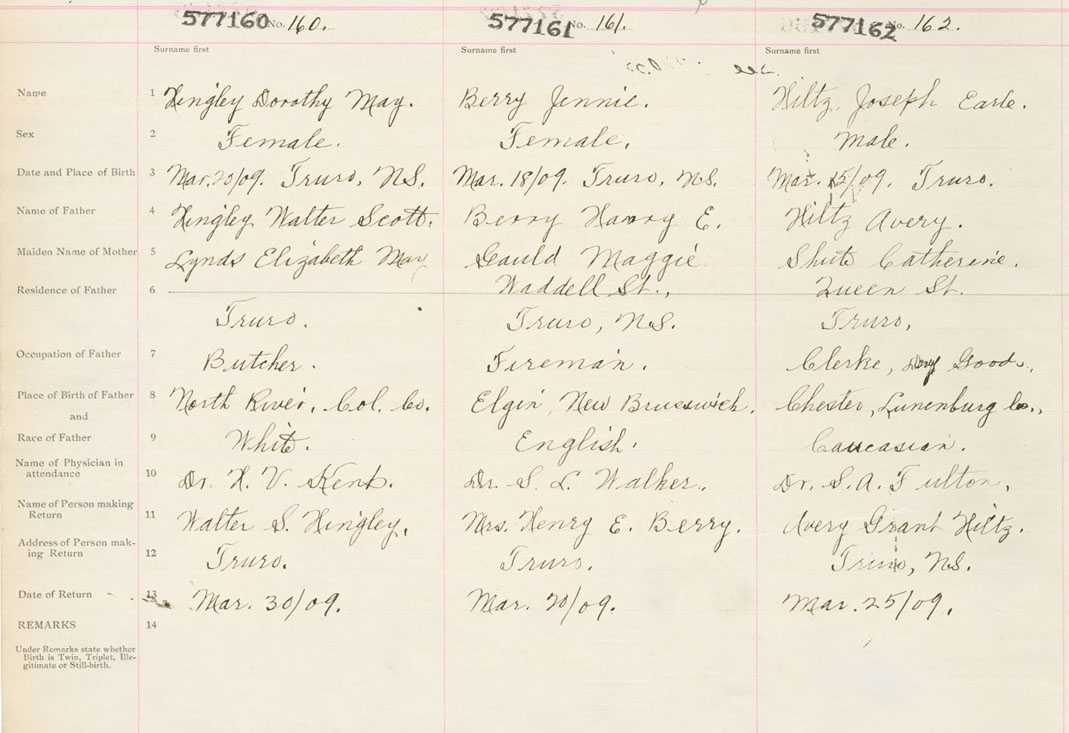 577160 No. 160. 577161 No. 161. 577162 No. 162.
Surname first Surname first Surname first
Name 1 Hingley Dorothy May. Berry Jennie. Hiltz Joseph Earle.
Sex 2 Female. Female. Male.
Date and Place of Birth 3 Mar. 20/09. Truro, N.S. Mar. 18/09. Truro, N.S. Mar. 15/09. Truro.
Name of Father 4 Hingley Walter Scott. Berry Harry E. Hiltz Avery.
Maiden Name of Mother 5 Lynds Elizabeth May Gauld Maggie Shute Catherine.
Residence of Father 6 Waddell St., Queen St.
Truro. Truro, N.S. Truro,
Occupation of Father 7 Butcher. Fireman. Clerke, Dry Goods,
Place of Birth of Father 8 North River, Col. Co. Elgin, New Brunswick. Chester, Lunenburg Co.,
and
Race of Father 9 White. English. Caucasian.
Name of Physician in
attendance 10 Dr. H. V. Kent. Dr. S. L. Walker. Dr. S. A. Fulton,
Name of Person making
Return 11 Walter S. Hingley, Mrs. Henry E. Berry. Avery Grant Hiltz.
Address of Person mak-
ing Return 12 Truro. Truro. Truro, N.S.
Date of Return 13 Mar. 30/09. Mar. 20/09. Mar. 25/09,
REMARKS 14
Under Remarks state whether
Birth is Twin, Triplet, Ille-
gitimate or Still-birth.